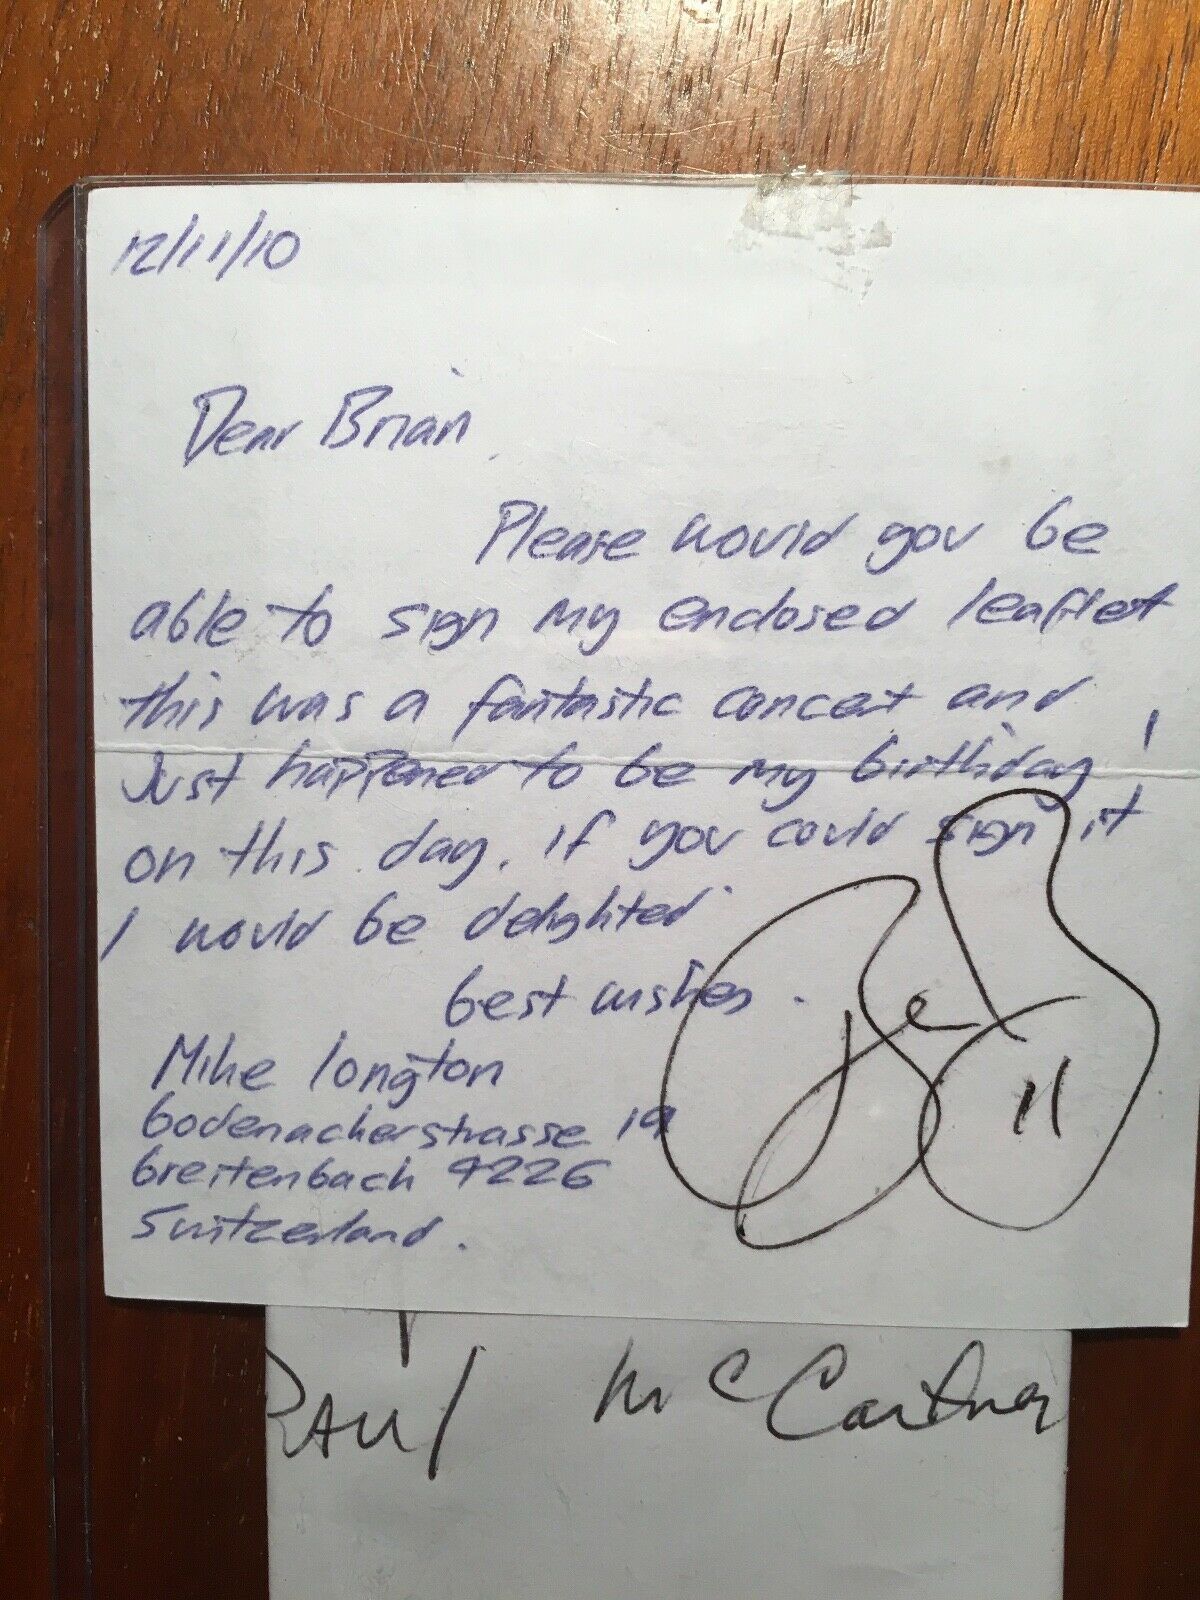 12/11/10
Dear Brian,
Please would you be
able to sign my enclosed leaflet
this was a fantastic concert and
Just happened to be my birthday!
on this day. if you could sign it
I would be delighted
best wishes.
Mike longton
bodenacherstrasse 19
breitenbach 4226
Switzerland.
11
PAUl McCartney